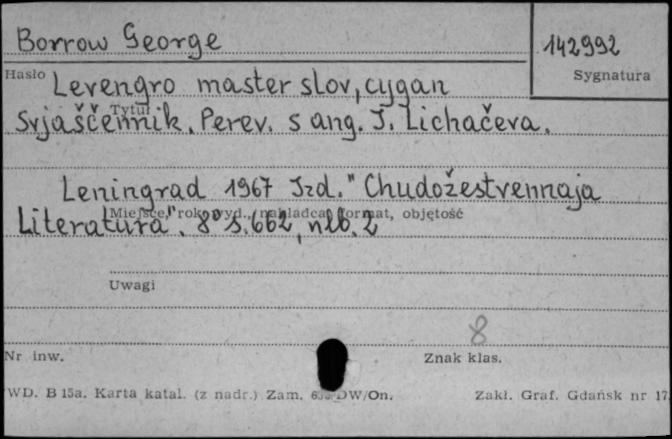 Borrow George
142992
Hasło
Sygnatura
Levengro master slov, cygan
Tytuł
Svjaščennik. Perev. s ang. I. Lichačeva.
Leningrad 1967 Izd. "Chudožestvennaja
Miejsce, rok wyd., nakładca, format, objętość
Literatura". 8° s. 662, nlb. 2
Uwagi
8
Nr inw.
Znak klas.
WD. B 15a. Karta katal. (z nadr.) Zam. DW/On.
Zakł. Graf. Gdańsk nr 17